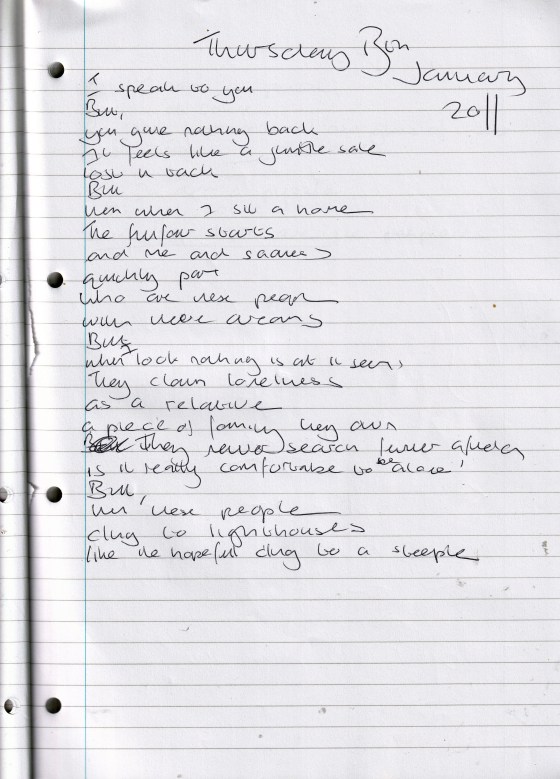 Thursday 
January
2011
I speak to you
But,
you give nothing back
It feels like a jumble sale
lost in back
But
then when I sit a home
the funfair starts
and me and sadness
quickly part
who are these people
with these dreams
But,
when I look nothing is at it seems
They claim loneliness
as a relative
a piece of family they own
They never search further
is it really comfortable to be alone!
But,
then these people
cling to lighthouses
like the hopeful cling to a steeple